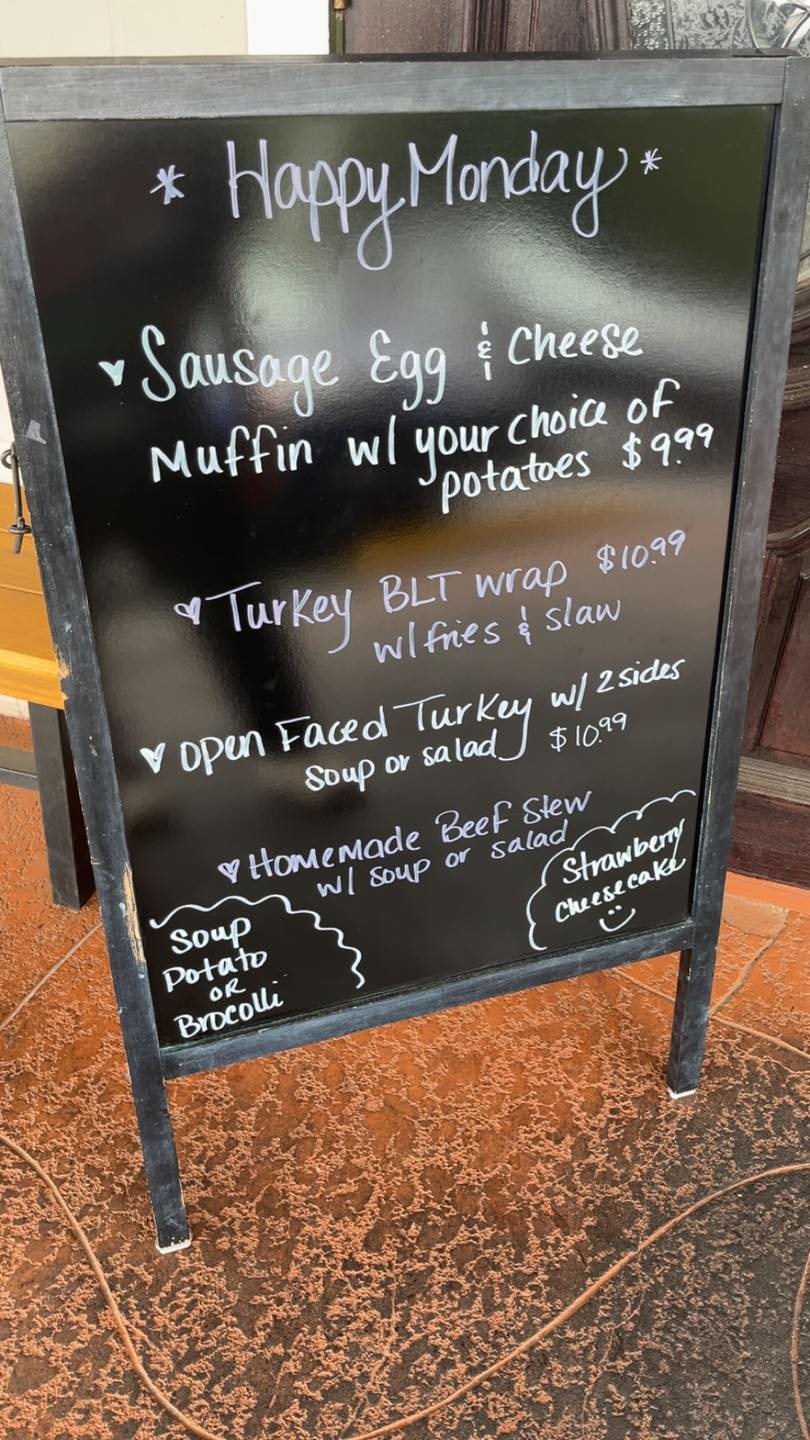 * Happy Monday *
Sausage Egg & Cheese
Muffin w/ your choice of
potatoes $9.99
Turkey BLT wrap $10.99
w/ fries & slaw
Open Faced Turkey w/ 2 sides
soup or salad $10.99
Homemade Beef Stew
w/ soup or salad
Strawberry
Cheesecake
Soup
Potato
OR
Brocolli